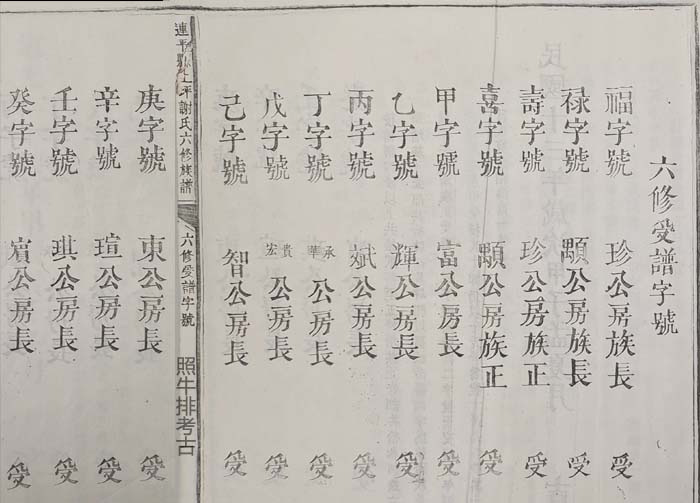 六修受譜字號
福字號 珍公房族長 受
祿字號 顒公房族長 受
壽字號 珍公房族正 受
喜字號 顒公房族正 受
甲字號 富公房長 受
乙字號 輝公房長 受
丙字號 斌公房長 受
丁字號 承華公房長 受
戊字號 貴宏公房長 受
己字號 智公房長 受
連平 上坪謝氏六修族譜 六修受譜字號
照牛排考古
庚字號 東公房長 受
辛字號 瑄公房長 受
壬字號 琪公房長 受
癸字號 賓公房長 受